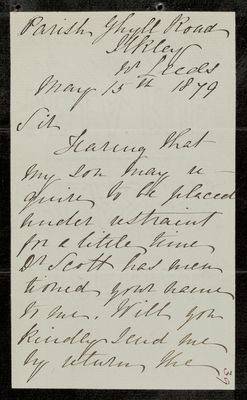 Parish Ghyll Road
Ilkley
Nr Leeds
May 15th 1879
Sir
Fearing that
my son may re
quire to be placed
under restraint
for a little time
Dr Scott has men
tioned your name
to me. Will you
kindly send me
by return the
39